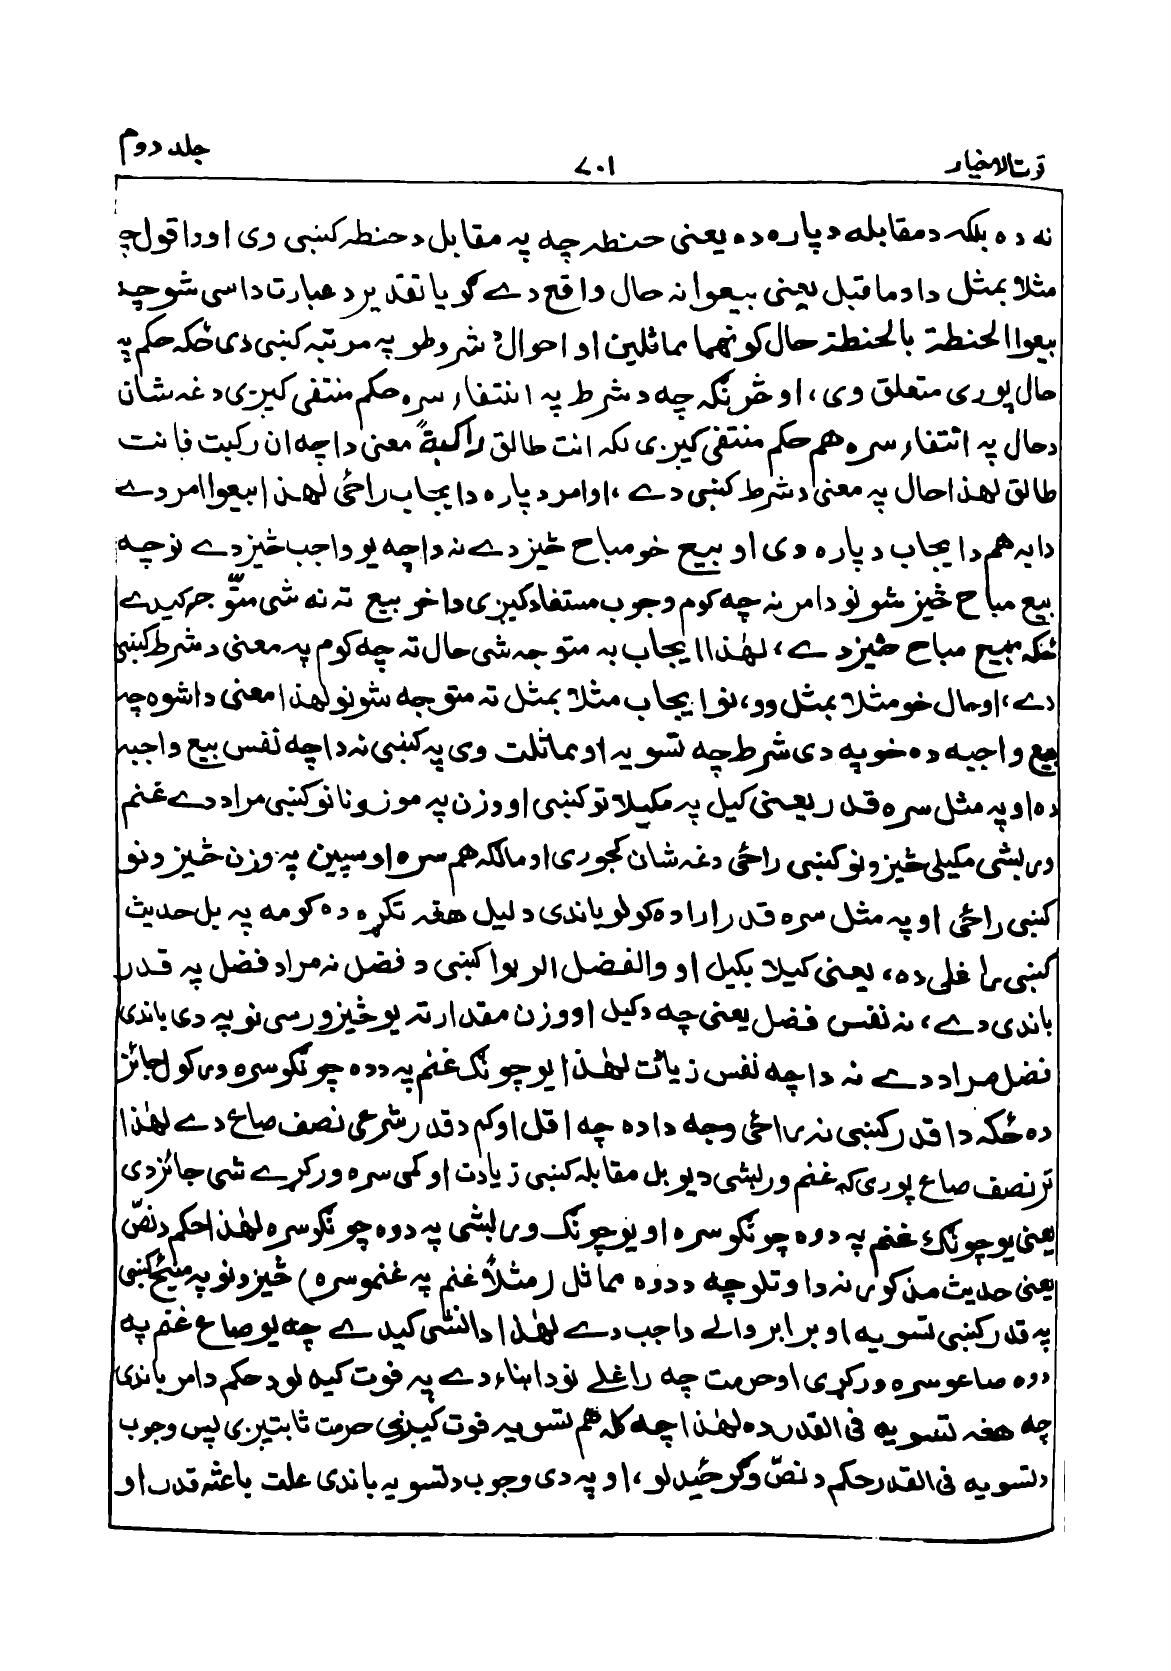 قوت الاخیار ۷۰۱ جلد دوم
نه ده بلکه د مقابله دپاره ده یعنی حنطه چه په مقابل د حنطه کښې وی او دا قول چه
مثلا بمثل دا د ماقبل یعنی بیعوا نه حال واقع دے گویا تقدیر د عبارت داسی شو چه
بیعوا الحنطة بالحنطة حال کونهما مماثلین او احوال شروطو په مرتبه کښې دی ځکه حکم په
حال پوری متعلق وی، او څرنګه چه د شرط په انتفاء سره حکم منتفی کیږی دغه شان
د حال په انتفاء سره هم حکم منتفی کیږی لکه انت طالق راکبةً معنی دا چه ان رکبت فانت
طالق لهذا حال په معنی د شرط کښې دے، او امر دپاره د ایجاب راځی لهذا بیعوا امر دے
دا به هم د ایجاب دپاره وی او بیع خو مباح څیز دے نه دا چه یو واجب څیز دے نو چه
بیع مباح څیز شو نو د امر نه چه کوم وجوب مستفاد کیږی دا خو بیع ته نه شی متوّجه کیدے
ځکه بیع مباح څیز دے، لهذا ایجاب به متوجه شی حال ته چه کوم په معنی د شرط کښې
دے، او حال خو مثلا بمثل وو، نو ایجاب مثلا بمثل ته متوجه شو نو لهذا معنی دا شوه چه
بیع واجبه ده خو په دی شرط چه تسویه او مماثلت وی په کښې نه دا چه نفس بیع واجبه
ده او په مثل سره قدر یعنی کیل په مکیلاتو کښې او وزن په موزوناتو کښې مراد دے غنم
وربشی مکیلی څیزونو کښې راځی دغه شان کجوری او مالګه هم سره او سپین په وزن څیزونو
کښې راځی او په مثل سره قدر اراده کولو باندی دلیل هغه تکره ده کومه په بل حدیث
کښې راغلی ده، یعنی کیلا بکیل او والفضل الربوا کښې د فضل نه مراد فضل په قدر
باندی دے، نه نفس فضل یعنی چه د کیل او وزن مقدار ته یو څیز ورسی نو په دی باندی
فضل مراد دے نه دا چه نفس زیاتت لهذا یو چونګ غنم په دوه چونګو سره ورکول جائز
ده ځکه دا قدر کښې نه راځی وجه دا ده چه اقل او کم د قدر شرعی نصف صاع دے لهذا
تر نصف صاع پوری که غنم وربشی د یو بل مقابله کښې زیادت او کمی سره ورکړے شی جائز دی
یعنی یو چونګ غنم په دوه چونګو سره او یو چونګ وربشی په دوه چونګو سره لهذا حکم د نصّ
یعنی حدیث مذکور نه دا وتلو چه د دوه مماثل (مثلاً غنم په غنمو سره) څیزونو په منیځ کښې
په قدر کښې تسویه او برابروالے واجب دے لهذا دا نشی کیدے چه یو صاع غنم په
دوه صاعو سره ورکړی او حرمت چه راغلے نو دا بناء دے په فوت کیدلو د حکم د امر باندی
چه هغه تسویه فی القدر ده لهذا چه کله هم تسویه فوت کیږی حرمت ثابتیږی پس وجوب
د تسویه فی القدر حکم د نصّ وګرځیدلو، او په دی وجوب د تسویه باندی علت باعثه قدر او